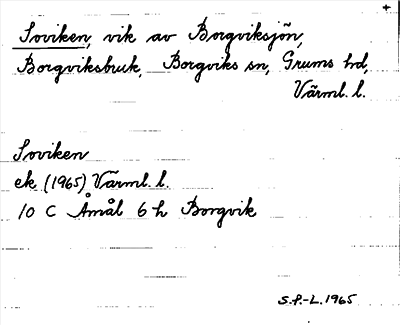 Soviken, vik av Borgviksjön,
Borgviksbruk, Borgviks sn, Grums hd,
Värml. l.
Soviken
ek. (1965) Värml. l.
10 C Åmål 6 h Borgvik
S.P.-L. 1965